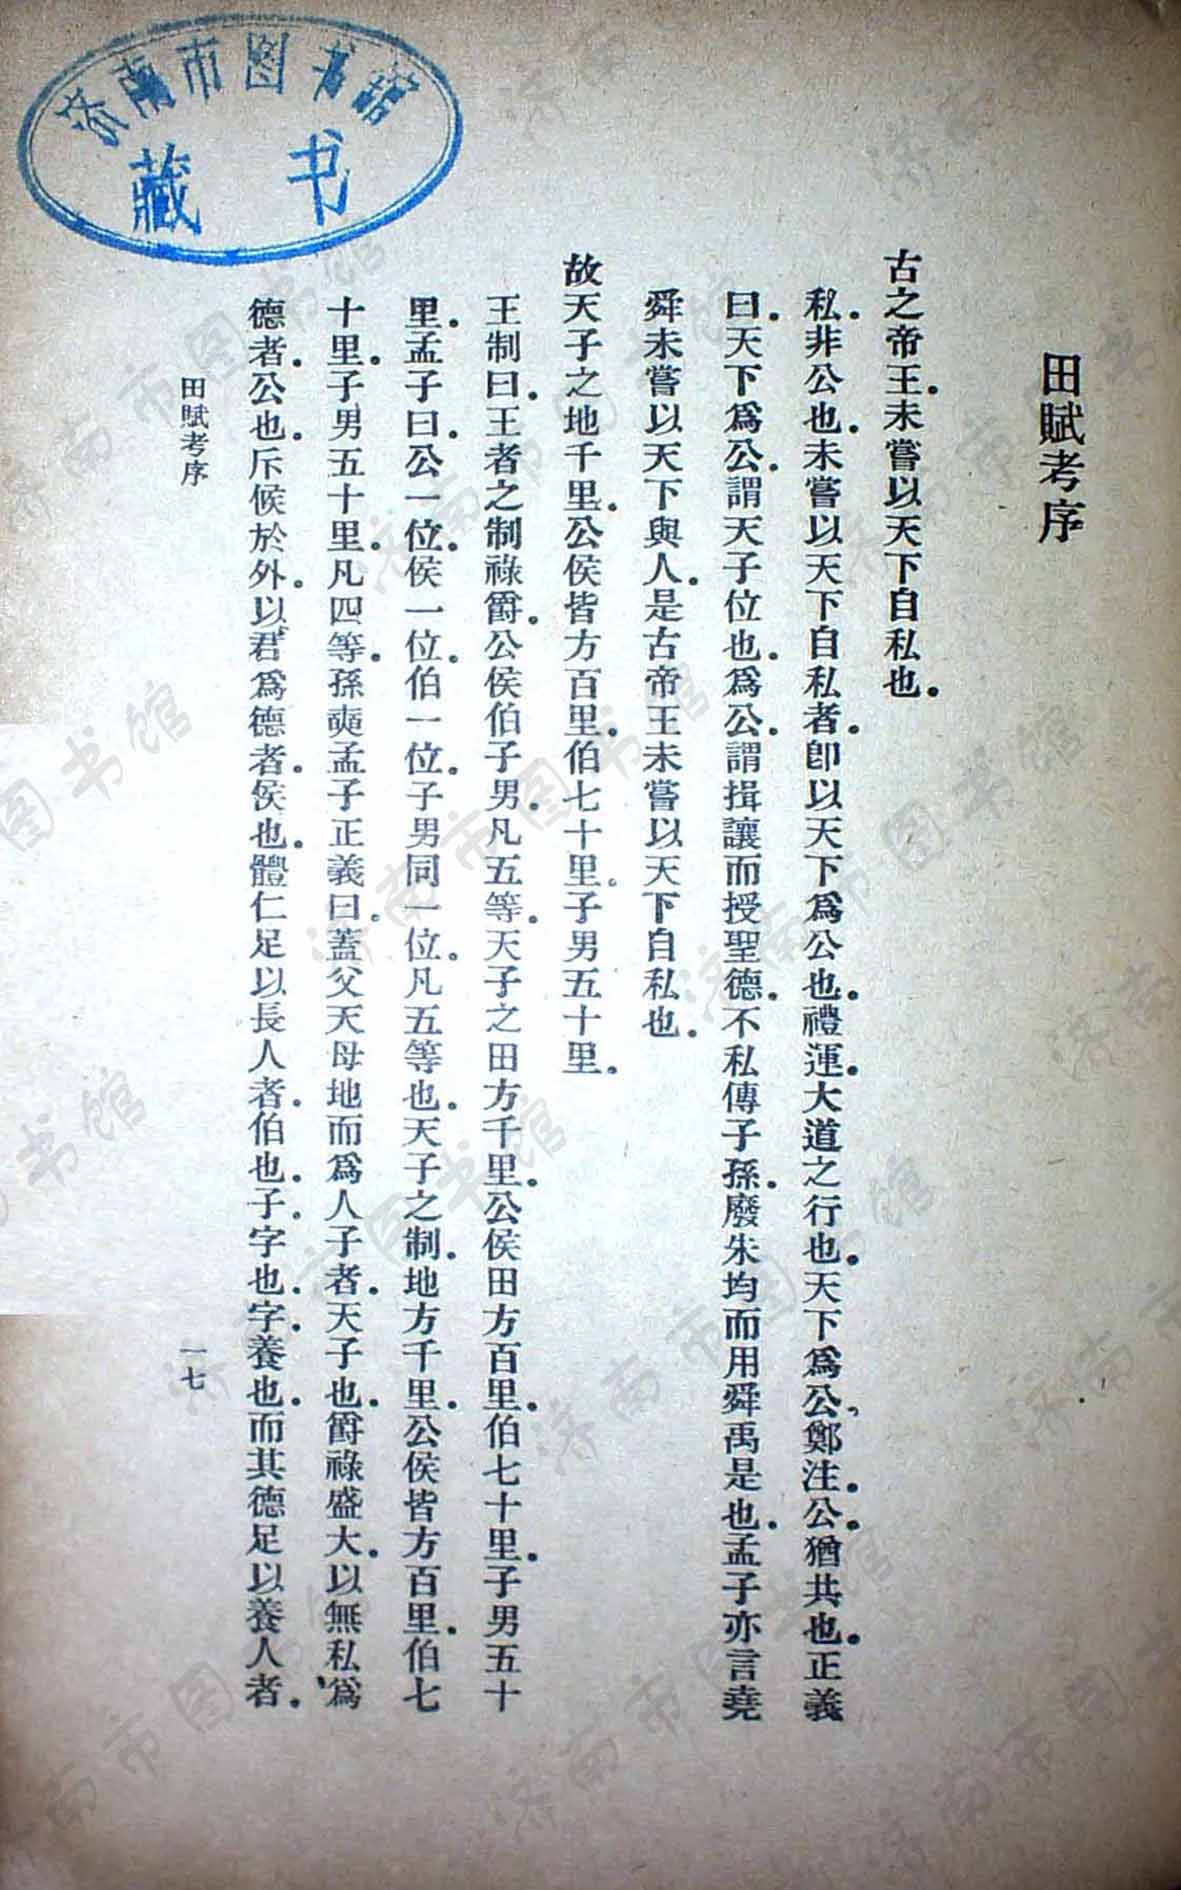 济南市图书馆
藏书
田賦考序
古之帝王。未嘗以天下自私也。
私。非公也。未嘗以天下自私者。卽以天下爲公也。禮運。大道之行也。天下爲公。鄭注。公。猶共也。正義
曰。天下爲公。謂天子位也。爲公。謂揖讓而授聖德。不私傳子孫。廢朱均而用舜禹是也。孟子亦言堯
舜未嘗以天下與人。是古帝王未嘗以天下自私也。
故天子之地千里。公侯皆方百里。伯七十里。子男五十里。
王制曰。王者之制祿爵。公侯伯子男。凡五等。天子之田方千里。公侯田方百里。伯七十里。子男五十
里。孟子曰。公一位。侯一位。伯一位。子男同一位。凡五等也。天子之制。地方千里。公侯皆方百里。伯七
十里。子男五十里。凡四等。孫奭孟子正義曰。蓋父天母地而爲人子者。天子也。爵祿盛大。以無私爲
德者。公也。斥候於外。以君爲德者。侯也。體仁足以長人者。伯也。子。字也。字。養也。而其德足以養人者。
田賦考序
一七